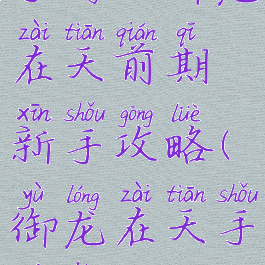 zài tiān qián qī
在天前期
xīn shǒu gōng lüè
新手攻略(
yù lóng zài tiān shǒu
御龙在天手